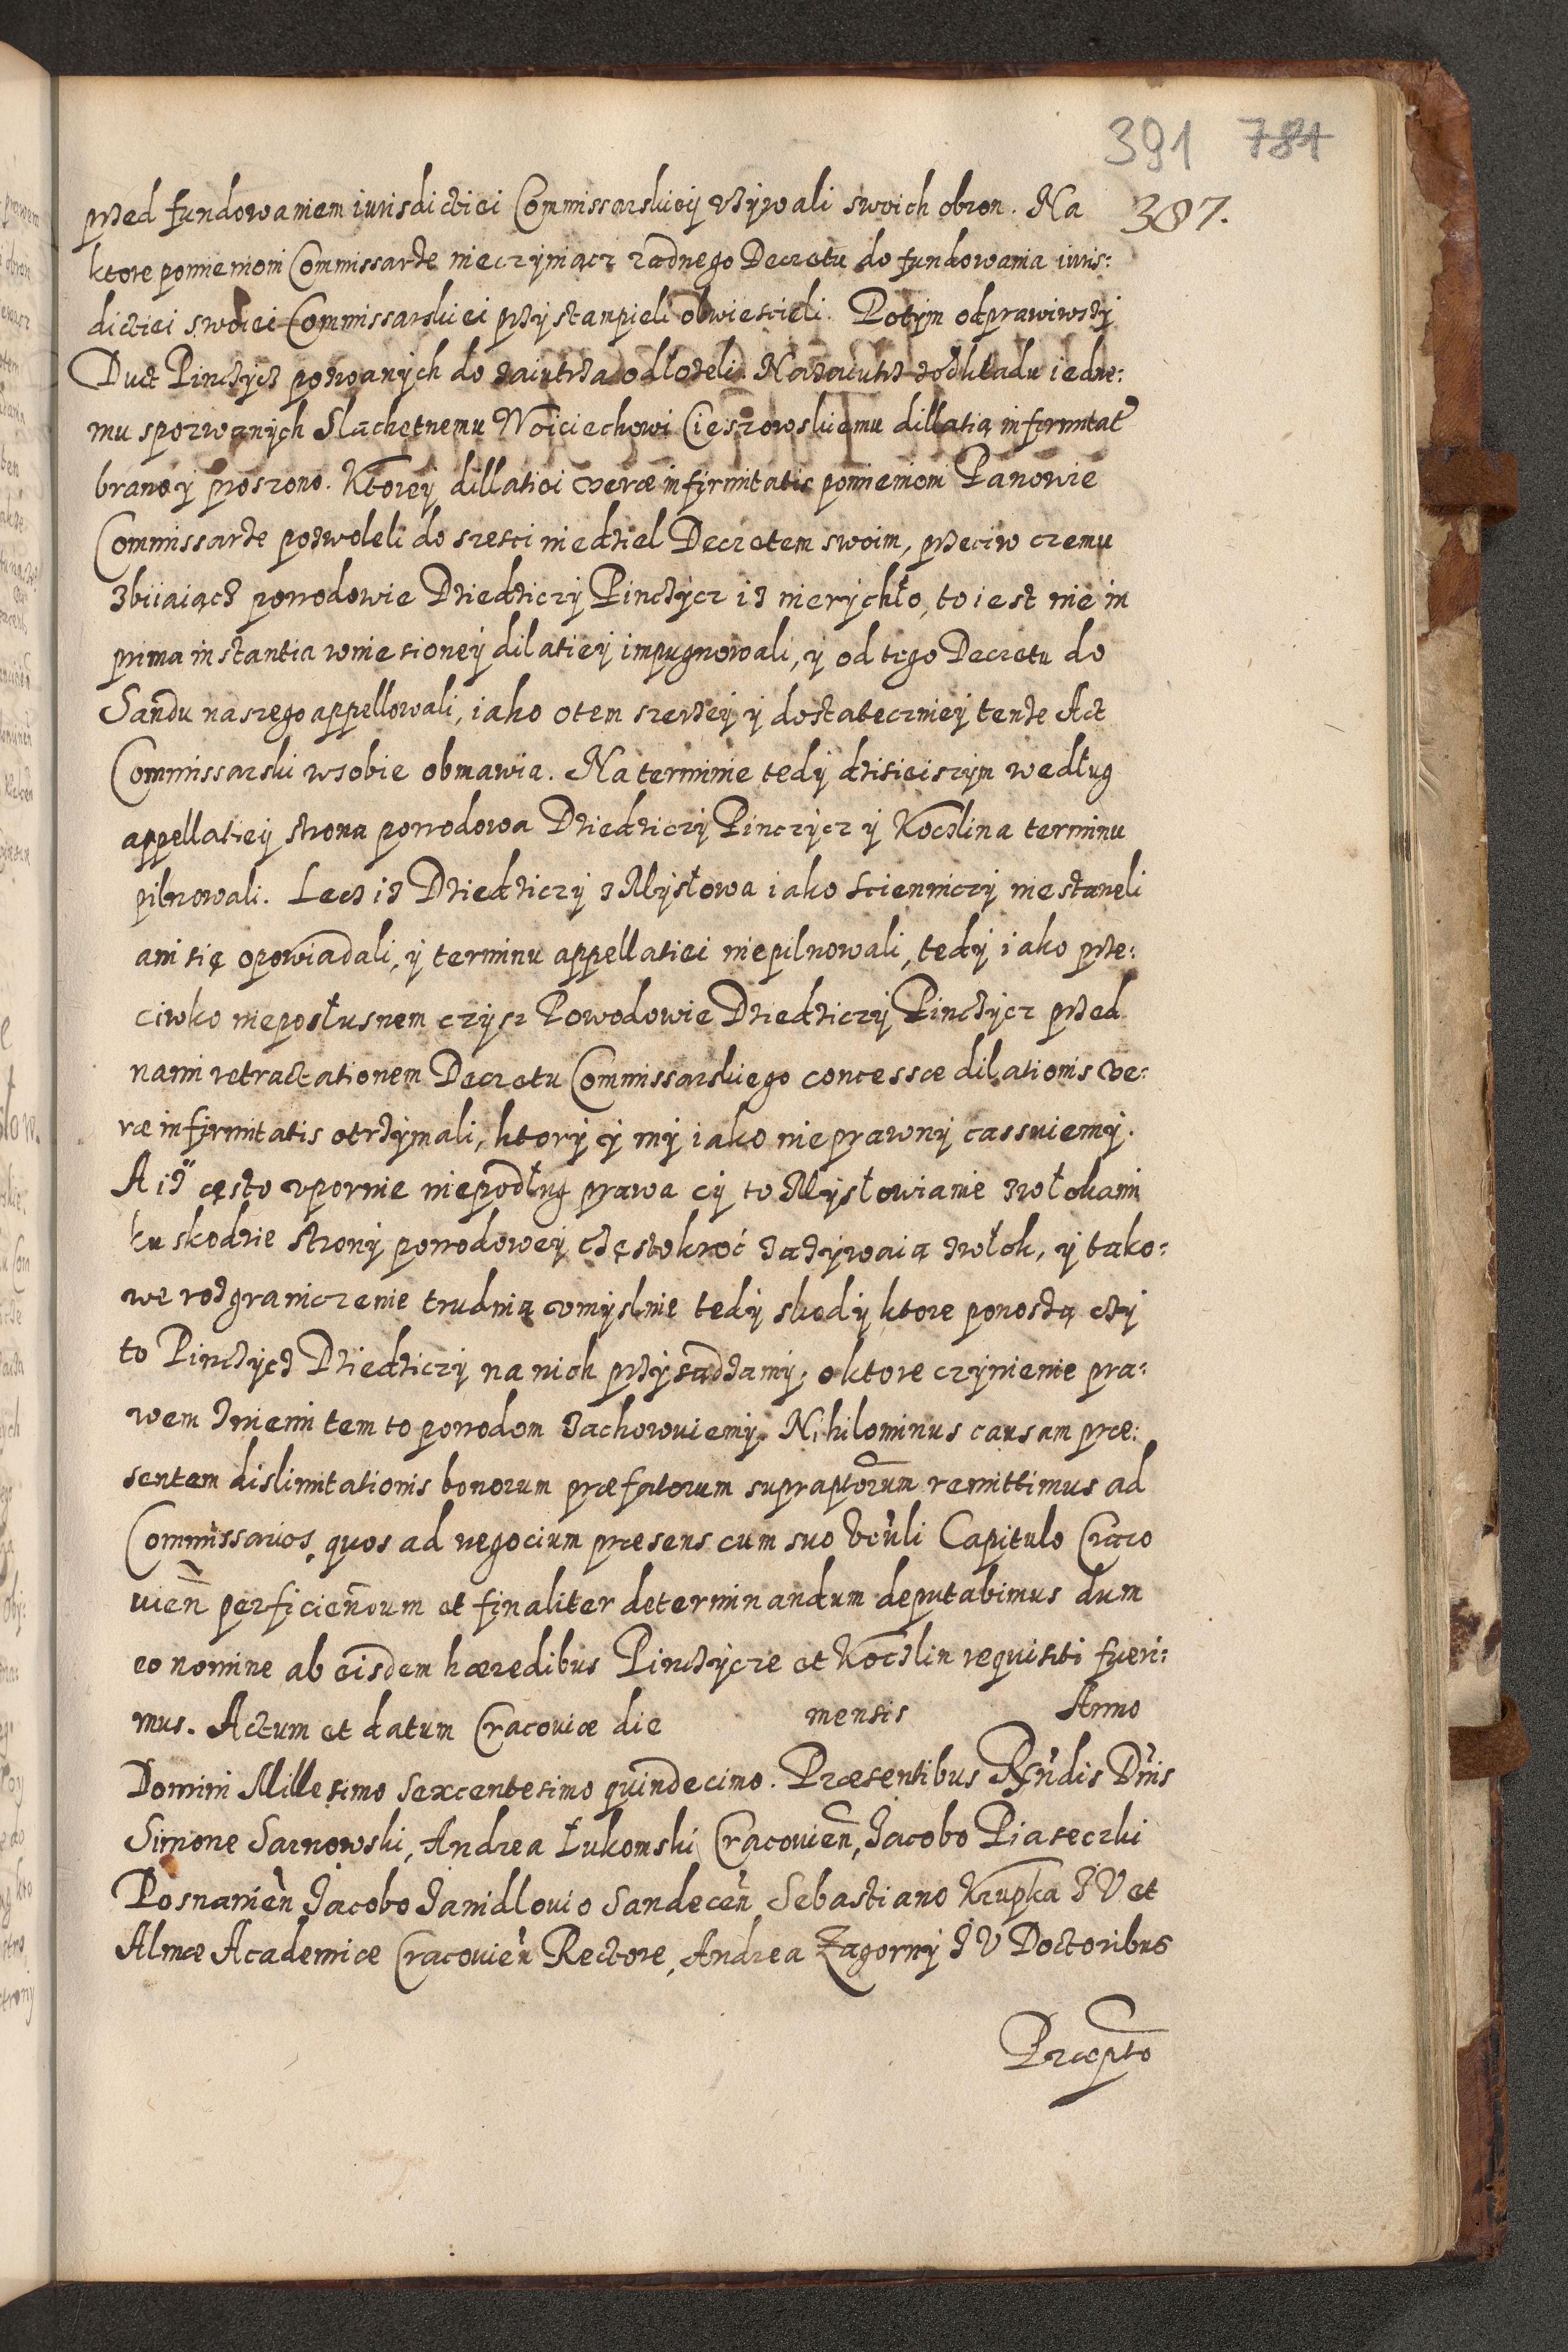 391 784
387.
przed fundowaniem iurisdictiei Commissarskiey vzywali swoich obron. Na
ktore pomienieni Commissarze nieczyniącz zadnego Decretu do fundowania iuris:
dictiei swoiei Commissarskiei przystanpieli obwiescieli. Potym odprawiwszy
Duct Pinczycz pozwanych do zaiutrza odłozeli. Nazaiutrz zodkładu iedne:
mu spozwanych Slachetnemu Woiciechowi Cieszowskiemu dillatią infirmitat
brano y proszono. Ktorey dillatiei veræ infirmitatis pomienieni Panowie
Commissarze pozwoleli do szesci niedziel Decretem swoim, przeciw czemu
zbiiaiącz powodowie Dziedziczy Pinczycz iz nierychło, to iest nie in
prima instantia wniesioney dilatiey impugnowali, y od tego Decretu do
Sandu naszego appellowali, iako otem szerzey y dostateczniey tenze Act
Commissarski wsobie obmawia. Na terminie tedy dzisieiszym według
appellatiey strona powodowa Dziedziczy Pinczycz y Koczlina terminu
pilnowali. Lecz iz Dziedziczy z Mysłowa iako scienniczy niestaneli
ani się opowiadali, y terminu appellatiei niepilnowali, tedy iako prze:
ciwko nieposłusnem czysz Powodowie Dziedziczy Pinczycz przed
nami retractationem Decretu Commissarskiego concessæ dilationis ve:
ræ infirmitatis otrzymali, ktory y my iako nieprawny cassuiemy.
A iz często vpornie niepodług prawa cy to Mysłowianie zwłokami
ku skodzie strony powodowey częstokroć zazywaią zwłok, y tako:
we rozgraniczenie trudnią vmyslnie tedy skody ktore ponoszą czy
to Pinczycz Dziedziczy na nich przysądzamy. o ktore czynienie pra:
wem zniemi tem to powodom zachowuiemy. Nihilominus causam præ:
sentem dislimitationis bonorum præfatorum supraptorum remittimus ad
Commissarios, quos ad negocium præsens cum suo Vruli Capitulo Craco
uien perficiendum et finaliter determinandum deputabimus dum
eo nomine ab eisdem hæredibus Pinczycze et Koczlin requisiti fueri:
mus. Actum et datum Cracouiæ die mensis Anno
Domini Millesimo Sexcentesimo quindecimo. Præsentibus Rndis Dnis
Simone Sarnowski, Andrea Łukomski Cracouien, Jacobo Piaseczki
Posnanien Jacobo Janidlouio Sandecen Sebastiano Krupka J V et
Almæ Academiæ Cracouien Rectore, Andrea Zagorny J V Doctoribus
Præpto